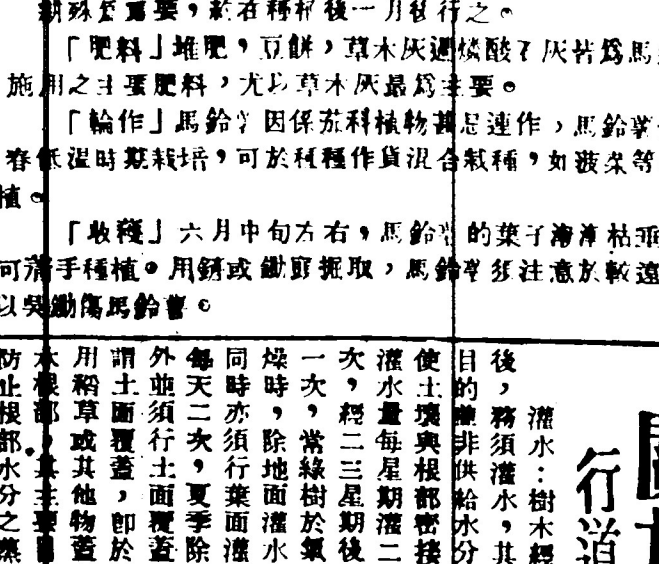 後一月後行之。
「肥料」堆肥，豆餅，草木灰過燐酸石灰皆爲馬
施用之主要肥料，尤以草木灰最爲主要。
「輪作」馬鈴薯因係茄科植物甚忌連作，馬鈴薯
春低溫時期栽培，可於種種作貨混合栽種，如菠菜等
植。
「收穫」六月中旬左右，馬鈴薯的葉子漸漸枯
可着手種植。用鋤或鋤頭掘取，馬鈴薯須注意於較遠
以 鋤傷馬鈴薯。
行道
灌水：樹木經
後，務須灌水，其
目的 非供給水分
使土壤與根部密接
灌水量每星期灌二
次，經二三星期後
一次，常綠樹於氣
燥時，除地面灌水
同時亦須行葉面灌
每天二次，夏季除
外並須行土面覆蓋
謂土面覆蓋，卽於
用稻草或其他物蓋
木根部，其主要目
防止根部水分之蒸